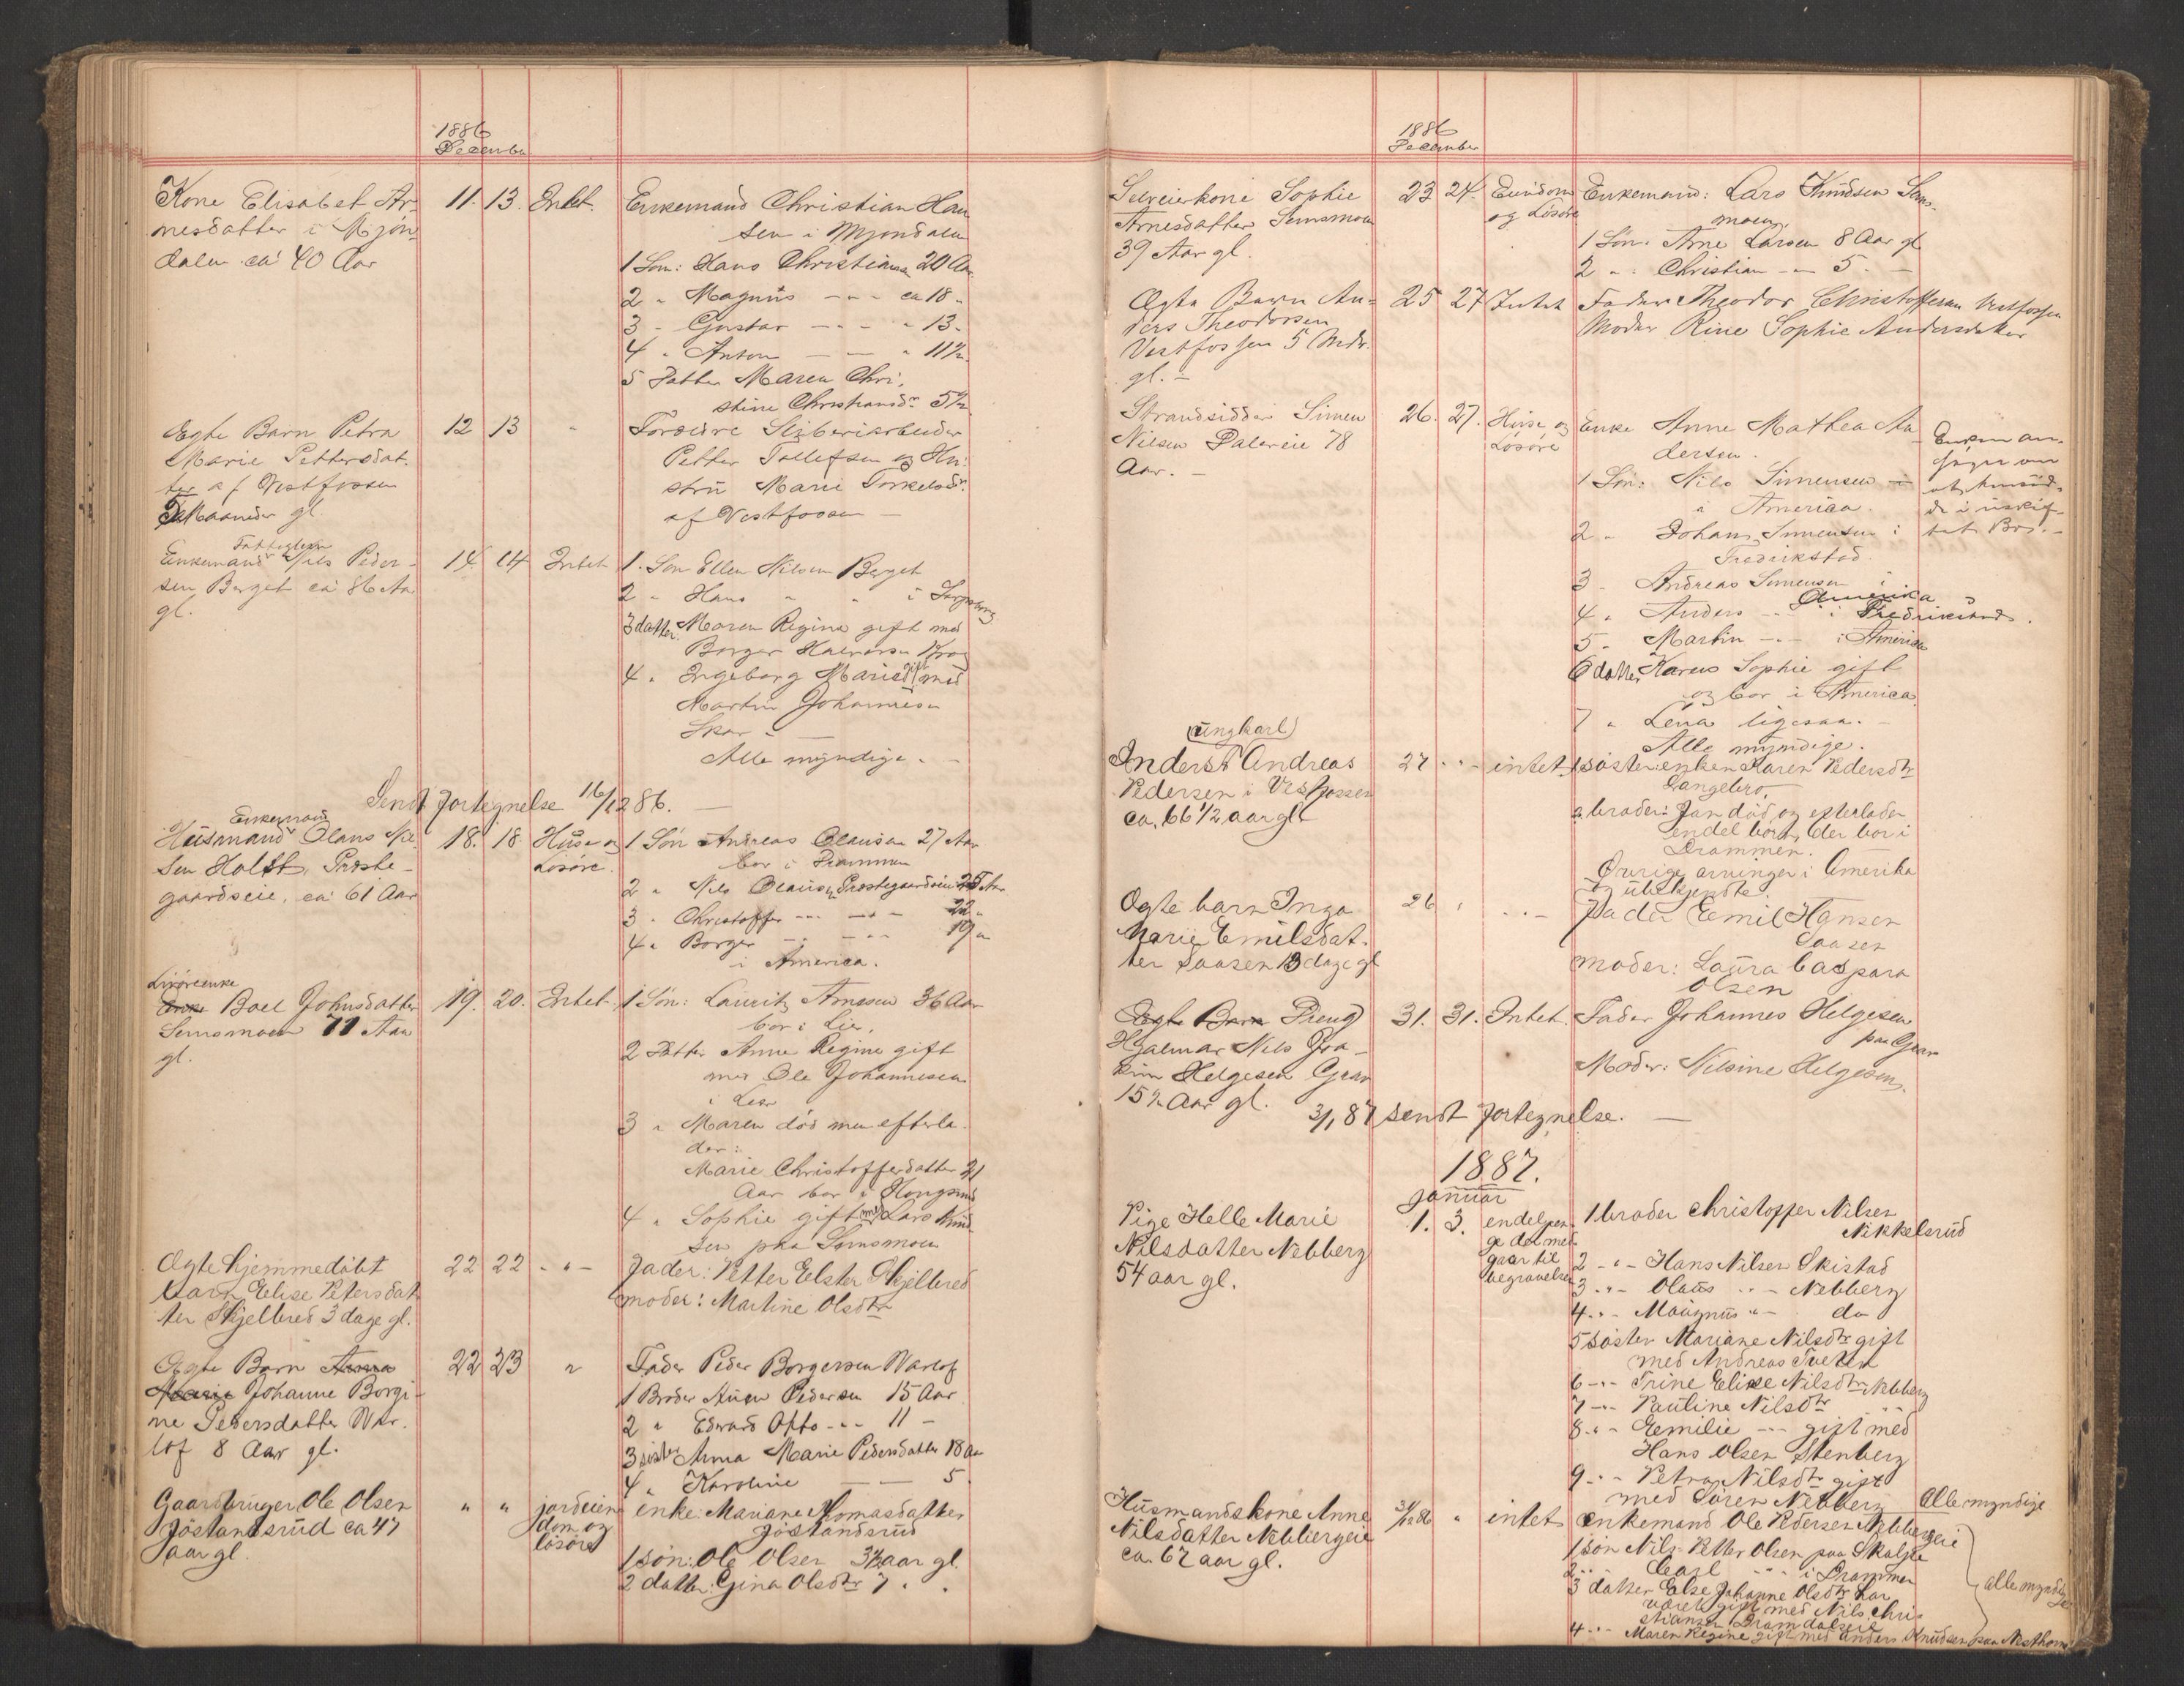 1886
December
Kone Elisabet Ar-
nesdatter i Mjøn-
dalen ca 40 Aar
11. 13. Intet.
Enkemand Christian Han
sen i Mjøndalen
1 Søn: Hans Christiansen 20 Aar
2 " Magnus - " - ca 18 "
3 - Gustav - - - " 13 -
4 " Anton - - " 11½
5 Datter Maren Chri-
stine Christiansdr 5½
Egte Barn Petra
Marie Pettersdat-
ter af Vestfossen
Maaneder gl.
12 13 "
Forældre Sliberiarbeider
Petter Tollefsen og Hu-
stru Marie Torkelsdr.
af Vestfossen
Fattiglem
Enkemand Nils Peder-
sen Berget ca 86 Aar
gl.
14 14 Intet
1. Søn Ellen Nilsen Berget
2 - Hans " " i Sarpsborg
3 datter Maren Regine gift med
Borger Halvorsen
4 " Ingeborg Marie gift med
Martin Johannesen
Skar -
Alle myndige. -
Sendt Fortegnelse 16/12 86. -
Enkemand
Husmand Olaus
sen Holst, Præste-
gaardseie, ca 61 Aar
18. 18 Huse og
Løsøre.
1 Søn Andreas Olausen 27 Aar
bor i Drammen
2 " Nils Olausen Præstegaardseie 25 Aar
3 " Christoffer - - - 22 "
4 " Borger - - - 19 "
i America.
Enke Boel Johnsdatter
Semsmoen 71 Aar
gl.
19. 20. Intet
1 Søn: Lauritz Arnesen 36 Aar
bor i Lier,
2 Datter Anne Regine gift
med Ole Johannesen
i Lier
3 " Maren død men efterla-
der:
Marie Christoffersdatter 21
Aar bor i Hougsund
4 " Sophie gift med Lars Knud
sen paa Semsmoen
Ægte hjemmedøbt
barn Elise Petersdat
ter Hjelbred 3 dage gl.
22 22 - " -
Fader: Petter Elster Hjelbred
moder: Martine Olsdtr
Egte Barn Anna
Marie Johanne Borgi-
ne Pedersdatter Var-
lof 8 Aar gl.
22 23 "
Fader Peder Borgersen Varlof
1 Broder Anton Pedersen 15 Aar
2 " Edvard Otto - " - 11 -
3 sister Anna Marie Pedersdatter 18 Aar
4 " Karoline - - 5
Gaardbruger Ole Olsen
Jøstandsrud ca 47
aar gl.
" " jordeien
dom og
løsøre
enke: Mariane Thomasdatter
Jøstandsrud
1 søn: Ole Olsen 3½ aar gl.
2 datter: Gina Olsdtr 7 " "
1886
December
Selveierkone Sophie
Arnesdatter Semsmoen
39 Aar gl.
23 24. Eiendom
og Løsøre
Enkemand: Lars Knudsen Sems-
moen,
1 Søn. Arne Larsen 8 Aar gl
2 - : Christian - " 5 - -
Ægte Barn An-
ders Theodorsen
Vestfossen 5 Mdr.
gl. -
25 27 Intet
Fader Theodor Christoffersen Vestfossen
Moder Rine Sophie Andersdatter
Strandsidder Simen
Nilsen Daler eie 78
Aar. -
26. 27. Huse og
Løsøre
Enke Anne Mathea An-
dersen.
Enken an-
søger om
at hensid-
de i uskif-
tet Bo. -
1 Søn: Nils Simensen -
i America.
2 - Johan Simensen i
Fredrikstad
3 - Andreas Simensen i
Amerika
4 " Anders - - i Fredrikstad.
5 - Martin - - i America
6 datter Karen Sophie gift
og bor i America
7 " Lena ligesaa. -
Alle myndige.
(ungkarl)
Anders Andreas
Pedersen i Vestfossen
ca. 66 1/2 aar gl.
27 " " - intet
1 søster: enken Karen Pedersdtr
Langebro,
2 broder: Jan død og efterlader
endel børn, der bor i
Drammen.
Øvrige arvinger i Amerika
og ubekjendte.
Ægte barn Inga
Marie Emilsdat-
ter Saasen 13 dage gl
26 " " -
Fader Eemil Hansen
Saasen
moder: Laura Caspara
Olsen
Egte Barn Dreng
Hjalmar Nils Joa-
kim Helgesen Grav
15½ Aar gl.
31. 31. Intet.
Fader Johannes Helgesen
paa Grav
Moder: Nilsine Helgesen,
3/1 87 sendt Fortegnelse. -
1887.
januar
Pige Helle Marie
Nilsdatter Nebberg
54 aar gl.
1. 3. endel pen-
ge der med-
gaar til
begravelsen
1 broder Christoffer Nilsen
Nikkelsrud
2 - " - Hans Nilsen Skistad
3 - " - Olaus - " - Nebberg
4 - " - Maagnus " - do
5 søster Mariane Nilsdtr gift
med Andreas Tveten
6 - " - Trine Elise Nilsdtr Nebberg
7 - " - Pauline Nilsdtr " "
8 - " - Eemilie - - gift med
Hans Olsen Stenberg
9 - " - Petra Nilsdtr gift
med Søren Nebberg
Alle myndige
Husmandskone Anne
Nilsdatter Nebbergeie
ca. 67 aar gl.
31/12 86 " intet
enkemand Ole Pedersen Nebbergeie
1 søn Nils Petter Olsen paa Skalstø
2 " - Carl - " - i Drammen
3 datter Else Johanne Olsdtr har
været gift med Nils Chri-
stiansen Dramdalseie
4 - " - Maren Regine gift med Anders Knudsen paa
alle myndige